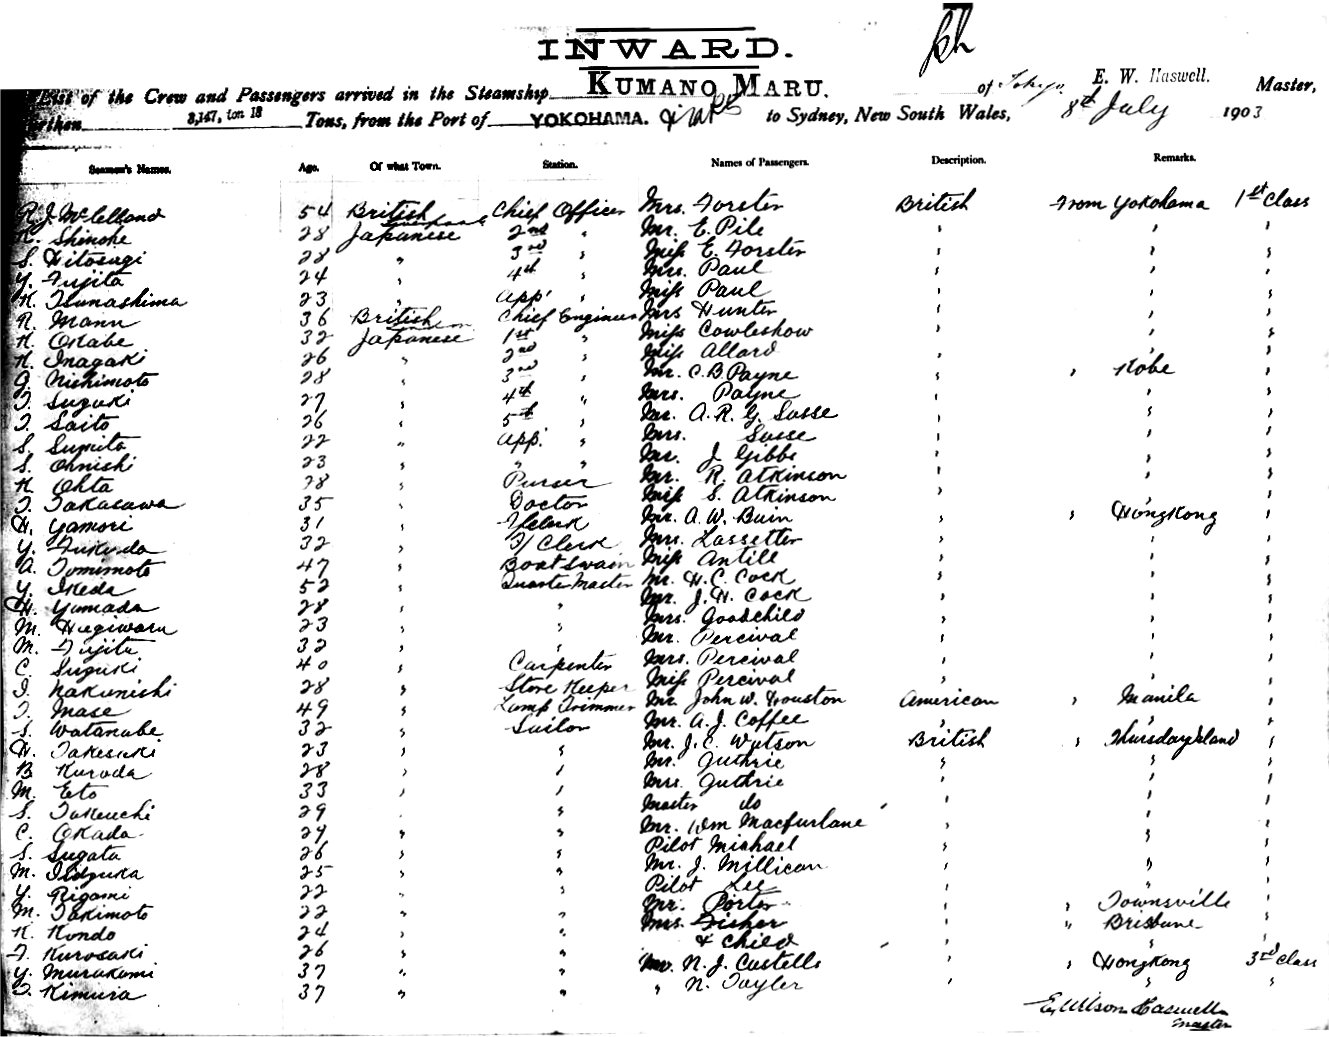 INWARD.
List of the Crew and Passengers arrived in the Steamship KUMANO MARU. of Tokyo, E. W. Haswell. Master,
Burthen 3,147, ton 18 Tons, from the Port of YOKOHAMA. & to Sydney, New South Wales, 8th July 1903
Seamen's Names. Age. Of what Town. Station. Names of Passengers. Description. Remarks.
R. J. McClelland 54 British Chief Officer Mrs. Forster British From Yokohama 1st Class
K. Shinohe 28 Japanese 2nd " Mr. E. Pile " " "
S. Hitosugi 28 " 3rd " Miss E. Forster " " "
Y. Fujita 24 " 4th " Mrs. Paul " " "
K. Tsunashima 23 " App. " Miss Paul " " "
R. Mann 36 British Chief Engineer Mrs Hunter " " "
K. Okabe 32 Japanese 1st " Miss Cowleshow " " "
K. Inagaki 26 " 2nd " Miss Allard " " "
J. Nishimoto 28 " 3rd " Mr. C. B. Payne " " Kobe "
T. Suzuki 27 " 4th " Mrs. Payne " " "
T. Saito 26 " 5th " Mr. A. R. G. Susse " " "
S. Sumita 22 " App. " Mrs. Susse " " "
S. Ohnishi 23 " " " Mr. J. Gibbs " " "
K. Ohta 28 " Purser Mr. R. Atkinson " " "
T. Takasawa 35 " Doctor Miss S. Atkinson " " "
H. Yamori 31 " Clerk Mr. A. W. Bain " " Hongkong "
Y. Fukuda 32 " F/ Clerk Mrs. Lassetter " " "
A. Tomimoto 47 " Boatswain Miss Antill " " "
Y. Ikeda 52 " Quarter Master Mr. H. C. Cock " " "
H. Yamada 28 " " Mr. J. H. Cock " " "
M. Hagiwara 23 " " Mrs. Goodchild " " "
M. Fujita 32 " " Mr. Percival " " "
C. Suzuki 40 " Carpenter Mrs. Percival " " "
I. Nakanishi 28 " Store Keeper Miss Percival " " "
T. Mase 49 " Lamp Trimmer Mr. John W. Houston American " Manila "
S. Watanabe 32 " Sailor Mr. A. J. Coffee " " "
H. Takesaki 23 " " Mr. J. C. Watson British " Thursday Island "
B. Kuroda 28 " " Mr. Guthrie " " "
M. Eto 33 " " Mrs. Guthrie " " "
S. Takeuchi 29 " " Master do " " "
C. Okada 24 " " Mr. Wm Macfarlane " " "
S. Sugata 26 " " Pilot Michael " " "
M. Iidzuka 25 " " Mr. J. Millican " " "
Y. Rigami 22 " " Pilot Lee " " "
M. Takimoto 22 " " Mr. Porter " " Townsville "
K. Kondo 24 " " Mrs. Fisher " " Brisbane "
T. Kurosaki 26 " " & Child " " "
Y. Murakami 37 " " Mr. N. J. Castells " " Hongkong 3rd Class
T. Kimura 37 " " " N. Tayler " " "
E. Wilson Haswell
Master